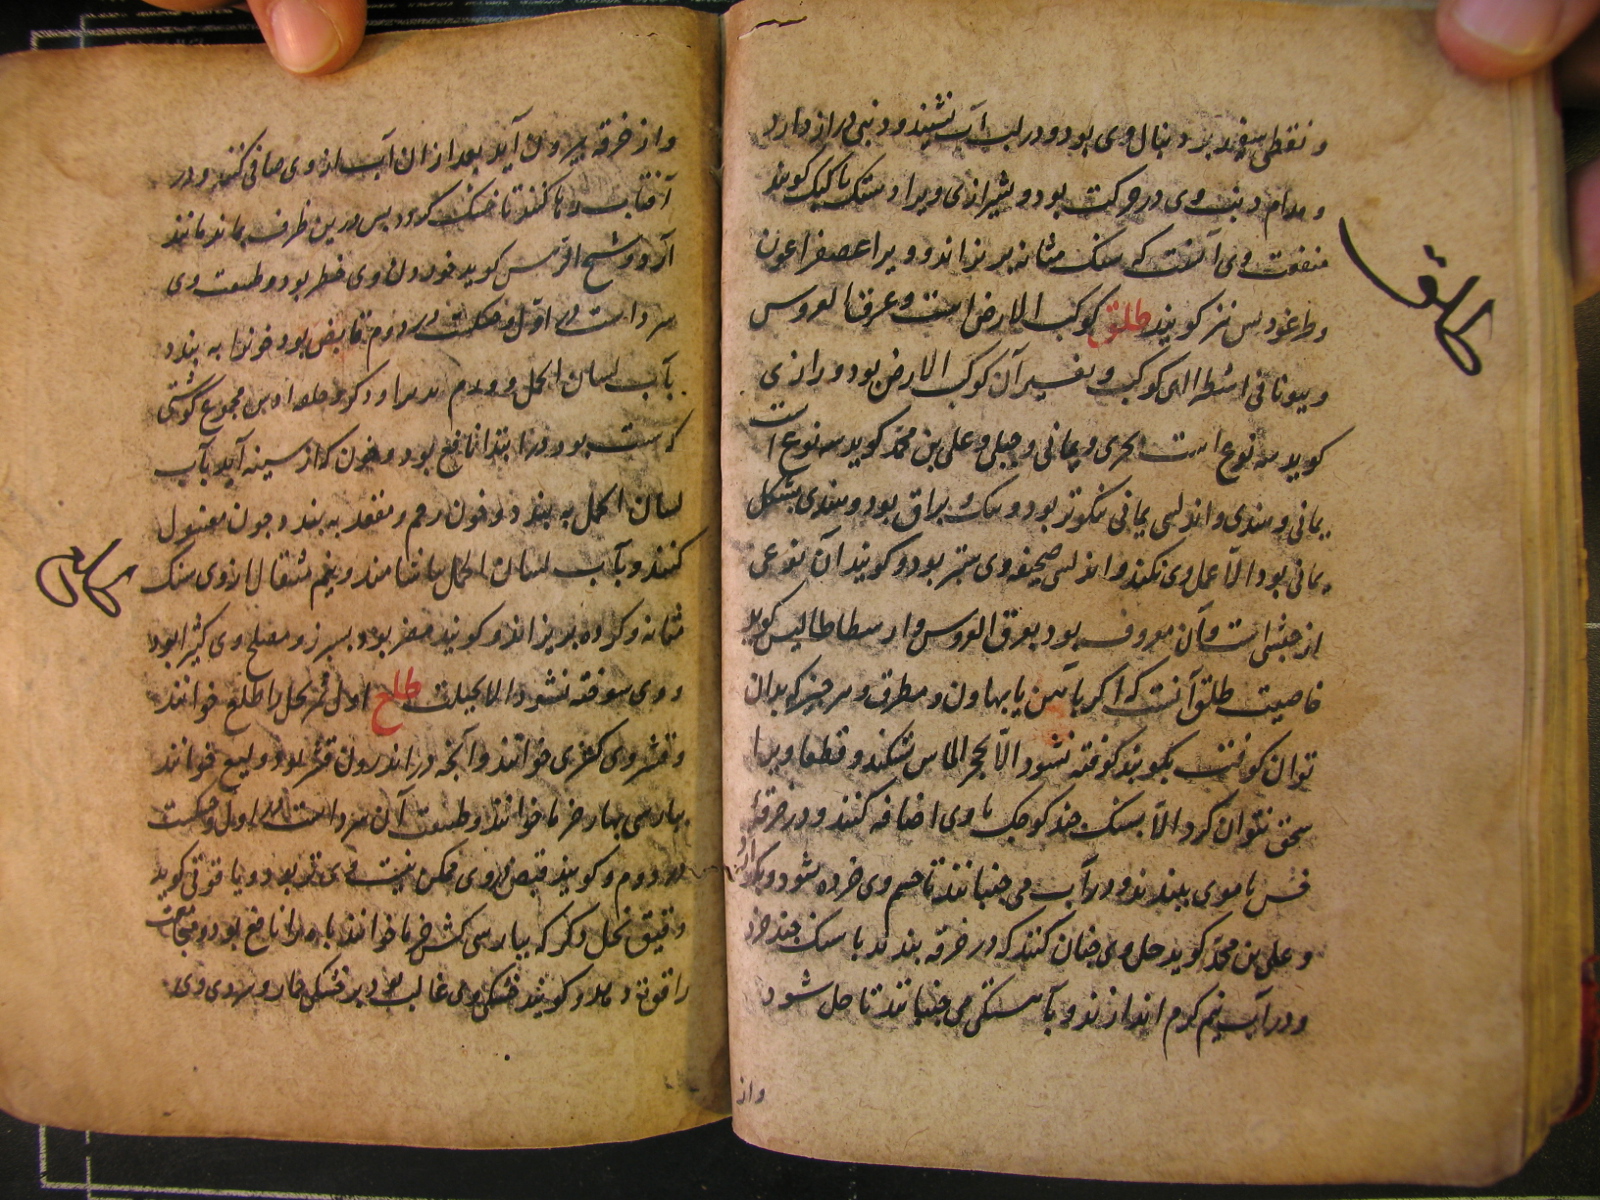 و نقطی سفید بر دنبال وی بود و در لب آب نشیند و دنبی دراز دارد
و مدام دنب وی در حرکت بود و شیرازی ویرا دستک با کیک کویند
منفعت وی آنست که سنک مثانه بریزاند و ویرا عصفر اعون
و طرغودیس نیز کویند طلق کوکب الارض است و عرق العروس
طلق
و بیونانی اسطه الهی کوکب و تفسیر آن کوکب الارض بود و رازی
کوید سه نوع است بحری و یمانی و جبلی و علی بن محمد کوید سه نوع است
یمانی و هندی و اندلسی یمانی نیکوتر بود و سنک براق بود و هندی بشکل
یمانی بود الا عمل وی نکند و اندلسی صحیفه وی ستبر بود و کویند آن نوعی
از جبسنی است و آن معروف بود بعرق العروس و ارسطاطالیس کوید
خاصیت طلق آنست که اکر باهن یا بهاون و مطرق و هر چیز که بدان
توان کوفت بکوبند کوفته نشود الا بحجر الماس شکند و قطعا ویرا
سحق نتوان کرد الا بسنک چند کوچک با وی اضافه کنند و در خرقه
با موی بندند و در آب می جنبانند تا جسم وی خرده شود و بکدازد
و علی بن محمد کوید حل وی چنان کنند که در خرقه بندند با سنک چند خرد
و در آب نیم کرم اندازند و بآهستکی می جنبانند تا حل شود
واز
و از خرقه بیرون آید بعد از ان آب از وی صافی کنند و در
آفتاب رها کنند تا خشک کردد پس در بن ظرف بماند مانند
آرد و شیخ الرئیس کوید خوردن وی خطر بود و طبیعت وی
سرد است در اول و خشک در دوم قابض بود خونرا به بندد
بآب لسان الحمل و ورم
سست بود در ابتدا نافع بود و خون که از سینه آید بآب
لسان الحمل به بندد و خون رحم و مقعد به بندد چون مغسول
کنند و بآب لسان الحمل بیاشامند و نیم مثقال از وی سنک
طلع
مثانه و کرده بریزاند و کویند مضر بود بسپرز و مصلح وی کثیرا بود
و وی سوخته نشود الا بحیلت طلع اول ثمر نخل را طلع خوانند
و قشر وی کفری خوانند و آنچه در اندرون قشر بود ولیع خوانند
بپارسی بهار خرما خوانند و طبیعت آن سرد است در اول و خشک است
در دوم و کویند قبض در وی ممکن نیست وی تر بود و یا قوتی کوید
دقیق نخل ذکر که بپارسی کشن خرما خوانند باه را نافع بود و مجامعت
را قوت دهد و کویند خشکی وی غالب بود بر خشکی جمار و سردی وی